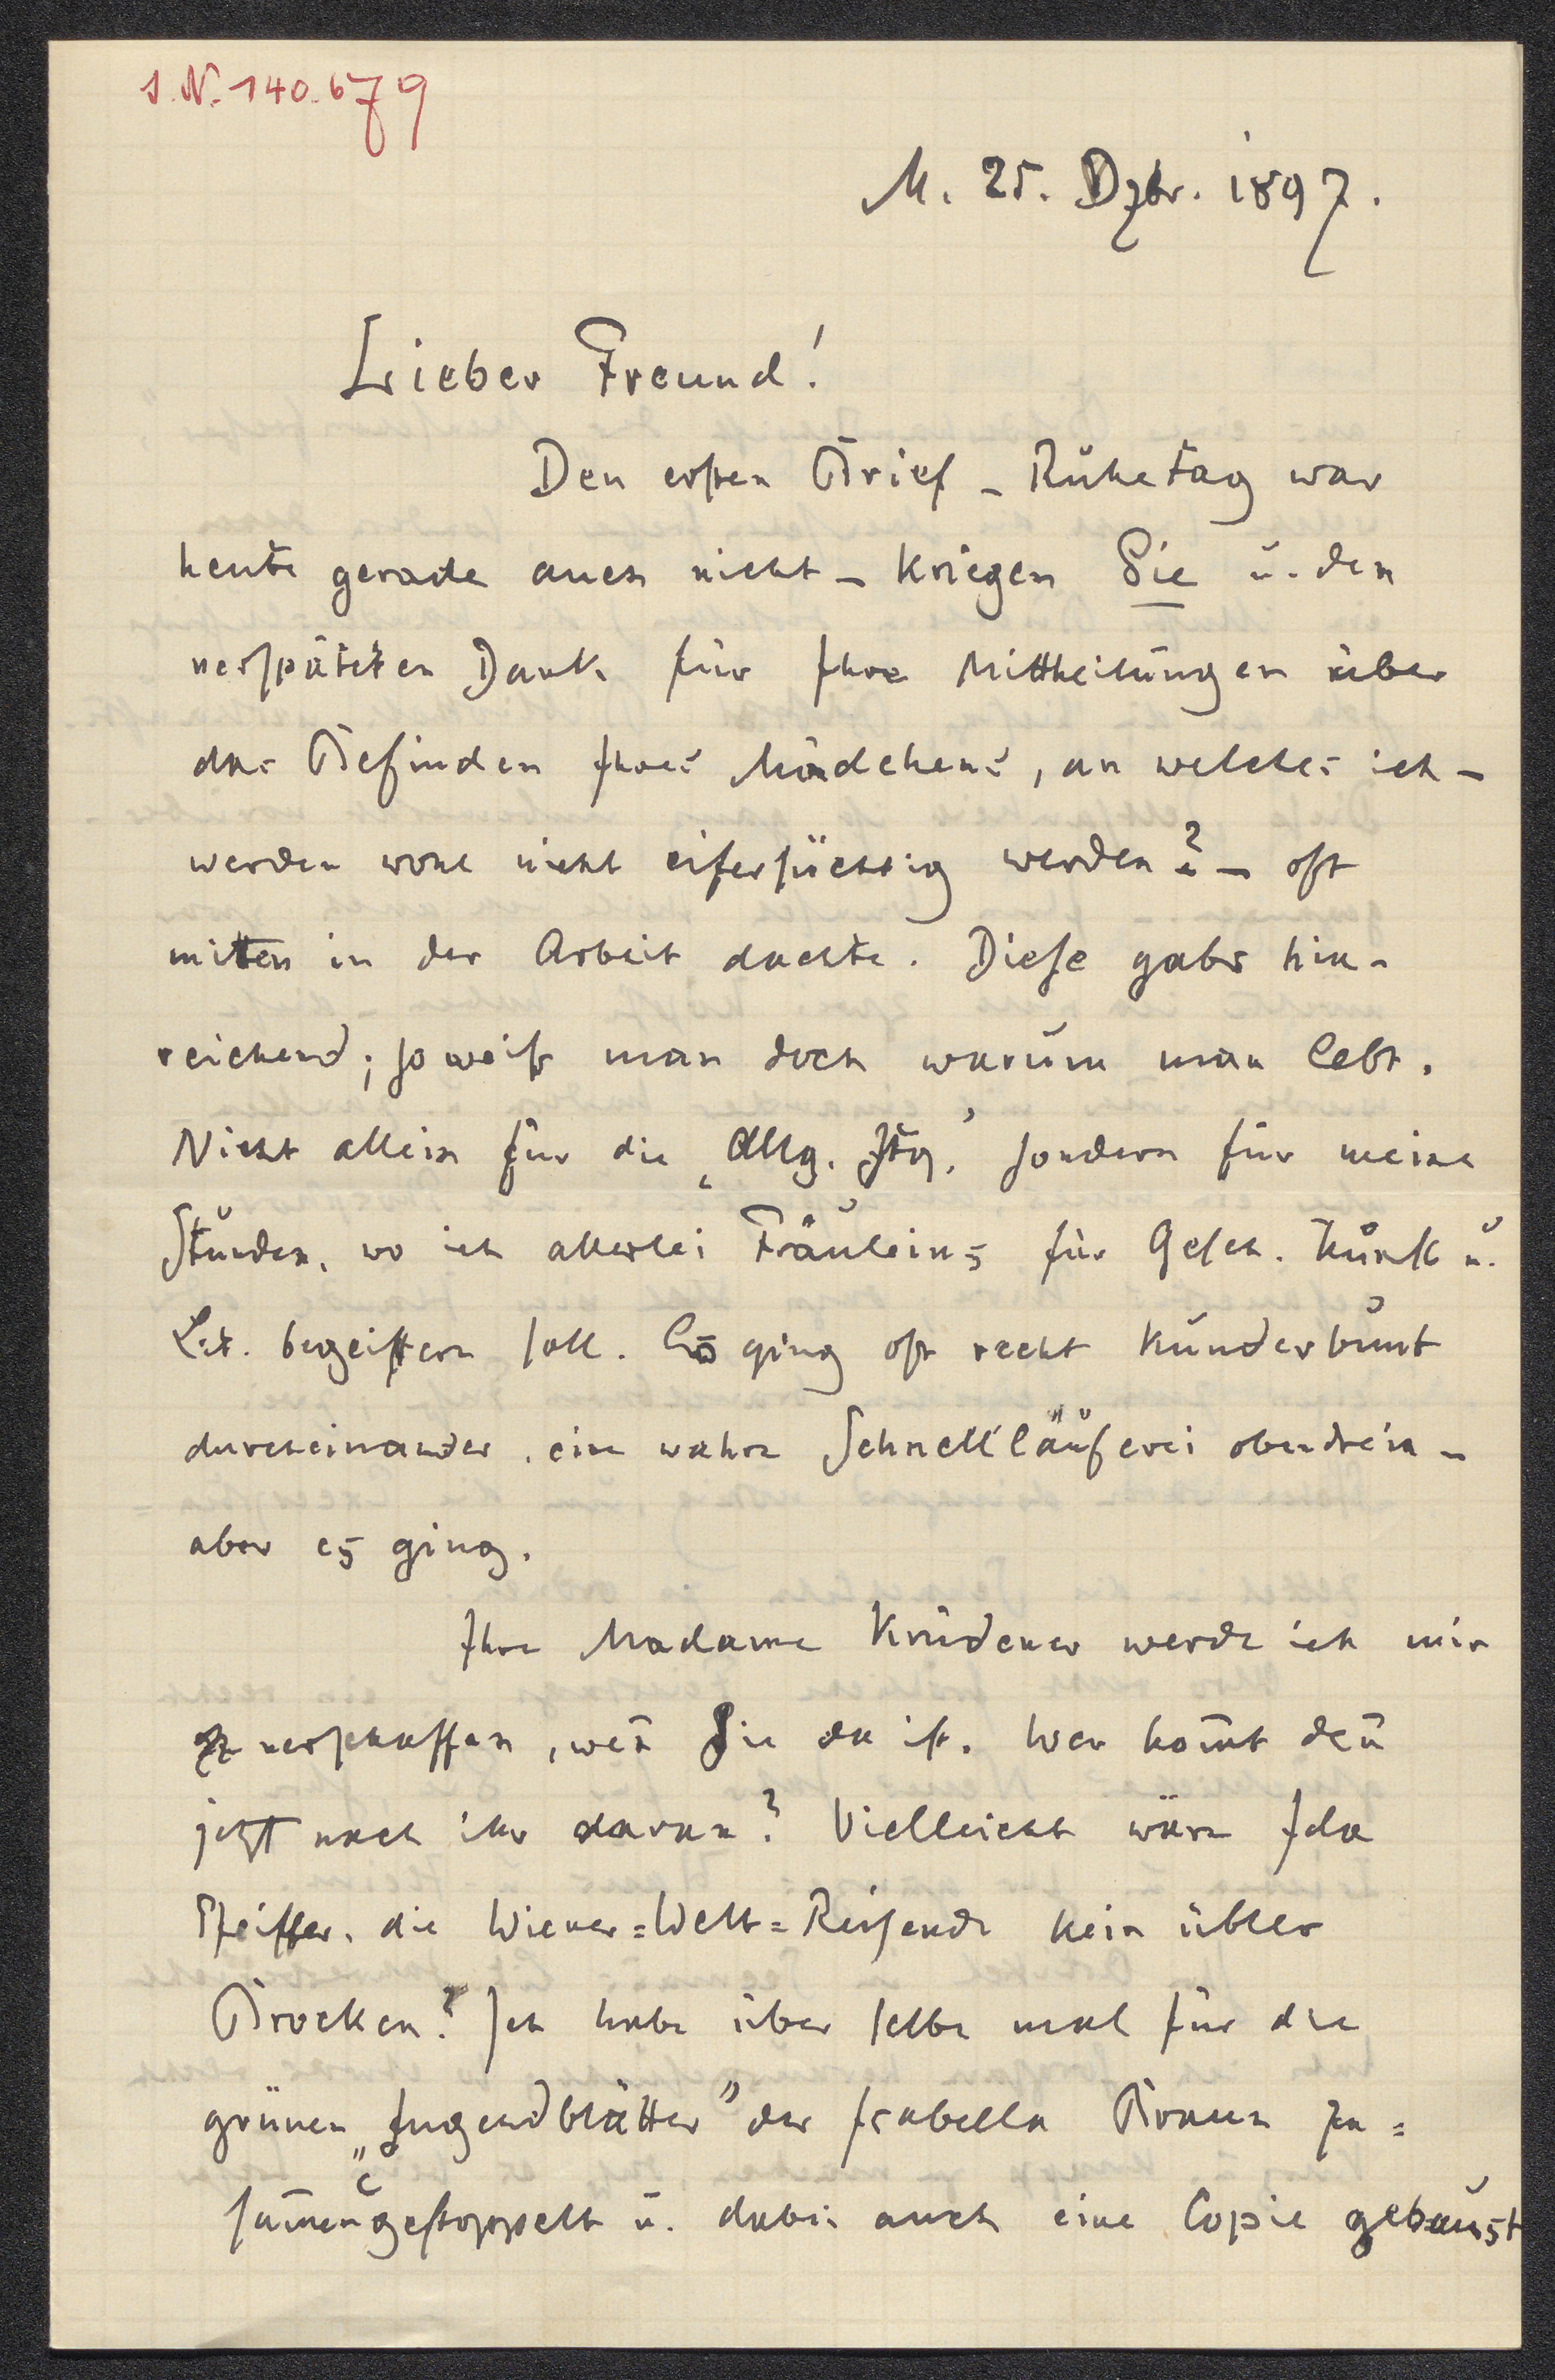 I.N. 140.679
M. 25. Dzbr. 1897.
Lieber Freund!
Den ersten Brief-Ruhetag war
heute gerade auch nicht – kriegen Sie u. den
verspäteten Dank für Ihre Mittheilungen über
das Befinden Ihres Mädchens, an welches ich –
werden wohl nicht eifersüchtig werden? – oft
mitten in der Arbeit dachte. Diese gabs hin-
reichend; so weiß man doch warum man lebt.
Nicht allein für die „Allg. Ztg.“ sondern für meine
Stunden, wo ich allerlei Fräuleins für Gesch. Kunst u.
Lit. begeistern soll. Es ging oft recht kunderbunt
durcheinander, eine wahre Schnellläuferei obendrein –
aber es ging.
Ihre Madame Krüdener werde ich mir
verschaffen, weñ Sie da ist. Wer kom̃t deñ
jetzt nach ihr daran? Vielleicht wäre Ida
Pfeiffer, die Wiener=Welt=Reisende kein übler
Brocken? Ich habe über selbe mal für die
grünen „Jugendblätter“ der Isabella Braun zu=
sam̃engestoppelt u. dabei auch eine Copie gebaust